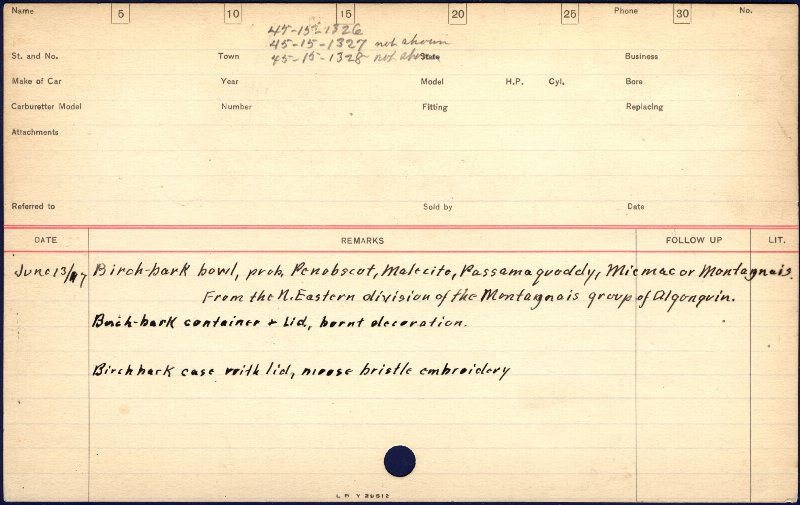 Name 5 10 15 20 25 Phone 30 No.
45-15-1326
45-15-1327 not shown
45-15-1328 not shown
St. and No. Town State Business
Make of Car Year Model H.P. Cyl. Bore
Carburetter Model Number Fitting Replacing
Attachments
Referred to Sold by Date
DATE REMARKS FOLLOW UP LIT.
June 13/17 Birch-bark bowl, prob. Penobscot, Malecite, Passamaquoddy, Micmac or Montagnais.
From the N. Eastern division of the Montagnais group of Algonquin.
Birch-bark container + lid, burnt decoration.
Birch bark case with lid, moose bristle embroidery
L B Y 26512